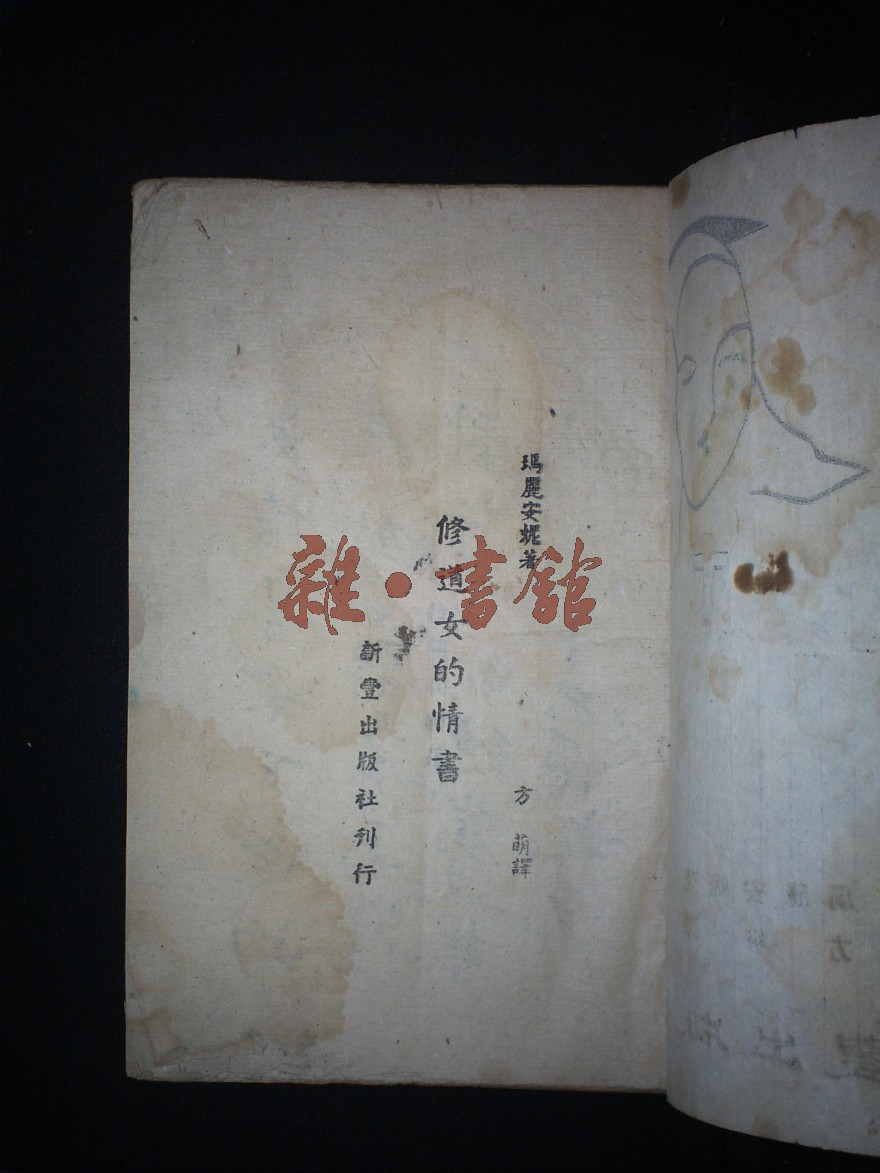 瑪麗安妮著
方萌譯
修道女的情書
新豐出版社刊行
雜·書館